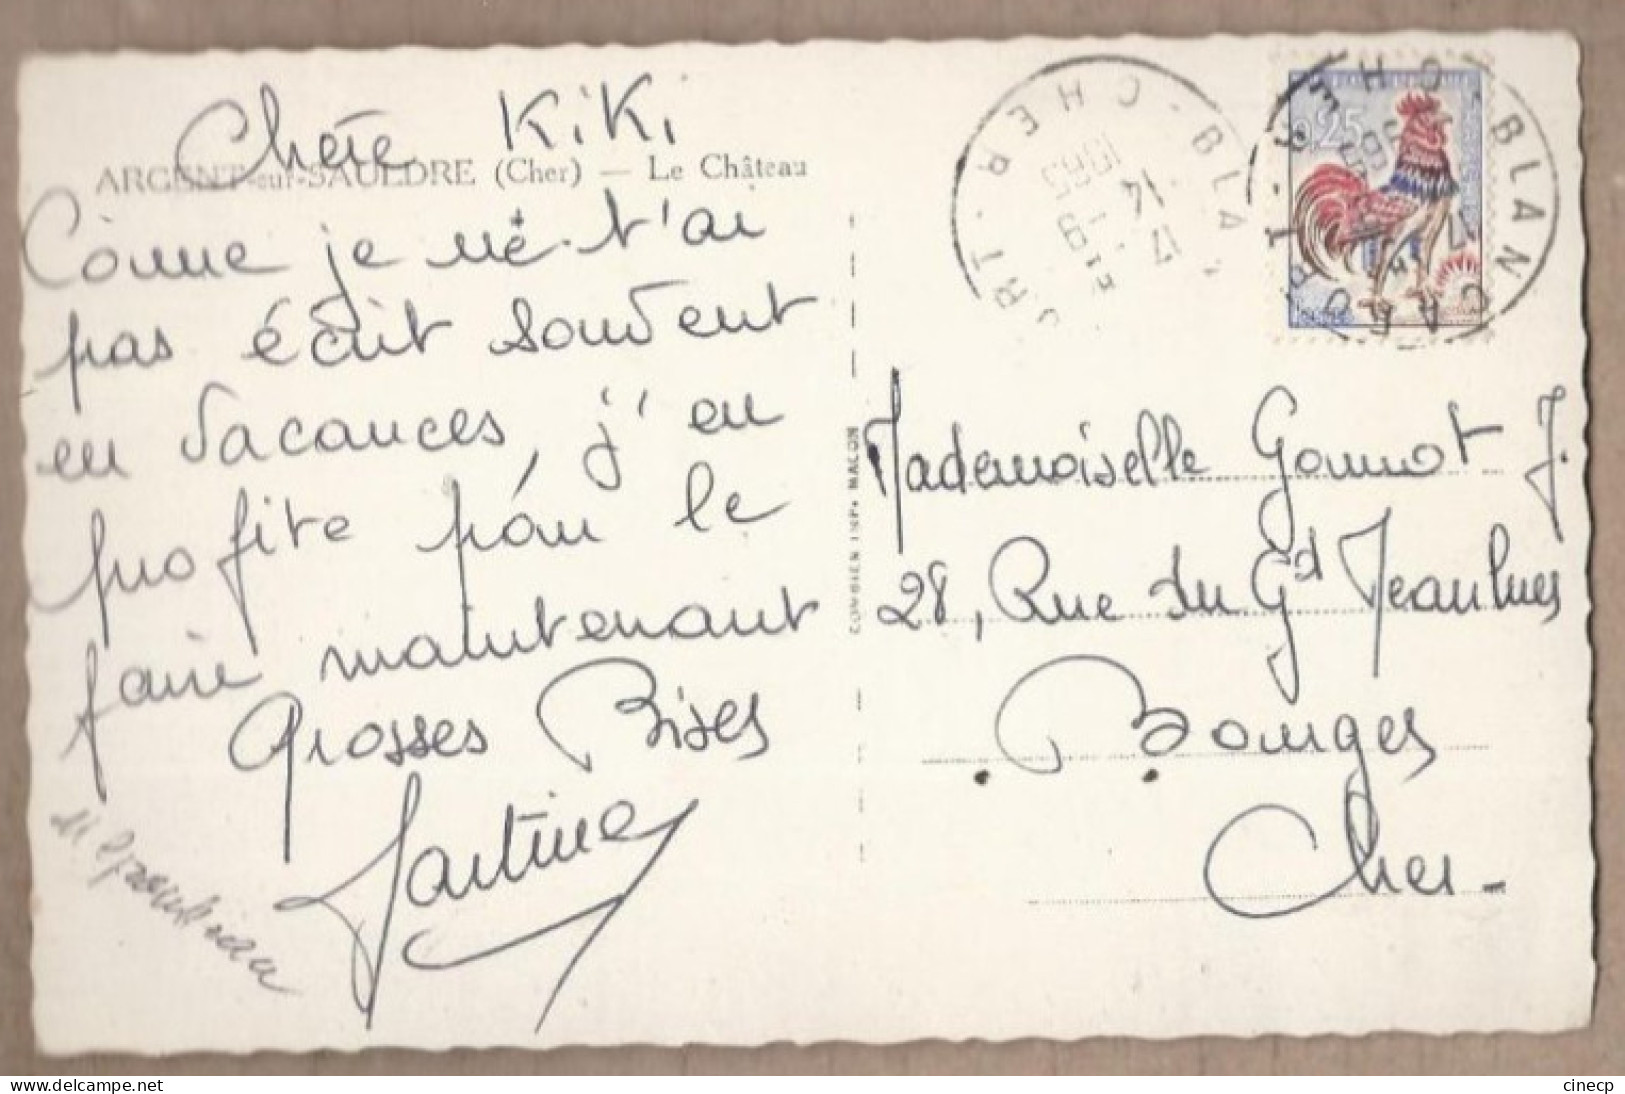 Chère KiKi
ARGENT-sur-SAULDRE (Cher) — Le Château
Comme je ne t'ai
pas écrit souvent
en vacances, j'en
profite pour le
faire maintenant
Grosses Bises
Martine
COMBIER IMP. MACON
BLANCAFORT - CHER
17 H
14 - 9
1965
0,25
Mademoiselle Gonnot J.
28, Rue du Gd Meaulnes
Bourges
Cher -
cinecp